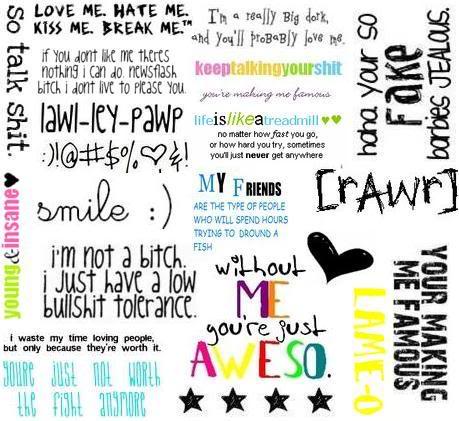 so talk shit.
LOVE ME. HATE ME.
KISS ME. BREAK ME.™
if you dont like me theres
nothing i can do. newsflash
bitch i dont live to please you.
lawl-ley-pawp
:)!@#$%,♡&!
smile :)
young & insane ♥
i'm not a bitch.
i just have a low
bullshit tolerance.
i waste my time loving people,
but only because they're worth it.
youre just not worth
the fight anymore
I'm a really Big dork,
and you'll proBaBly love me.
keeptalkingyourshit
you're making me famous
lifeislikeatreadmill ♥♥
no matter how fast you go,
or how hard you try, sometimes
you'll just never get anywhere
MY FRIENDS
ARE THE TYPE OF PEOPLE
WHO WILL SPEND HOURS
TRYING TO DROUND A
FISH
without
ME
you're just
AWESO.
haha. your so
Fake
barbies JEALOUS.
[rAwr]
YOUR MAKING
ME FAMOUS
LAME-O